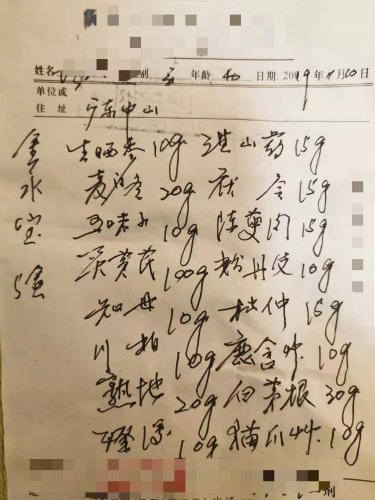 姓名 别 年龄 日期: 年 11月20日
单位或
住址 广东中山
金 生晒参 10g 淮山药 15g
水 麦冬 20g 茯苓 15g
宝 五味子 10g 陈萸肉 15g
黄芪 100g 粉丹皮 10g
知母 10g 杜仲 15g
川柏 10g 鹿含草 10g
熟地 20g 白茅根 30g
10g 猫爪草 10g